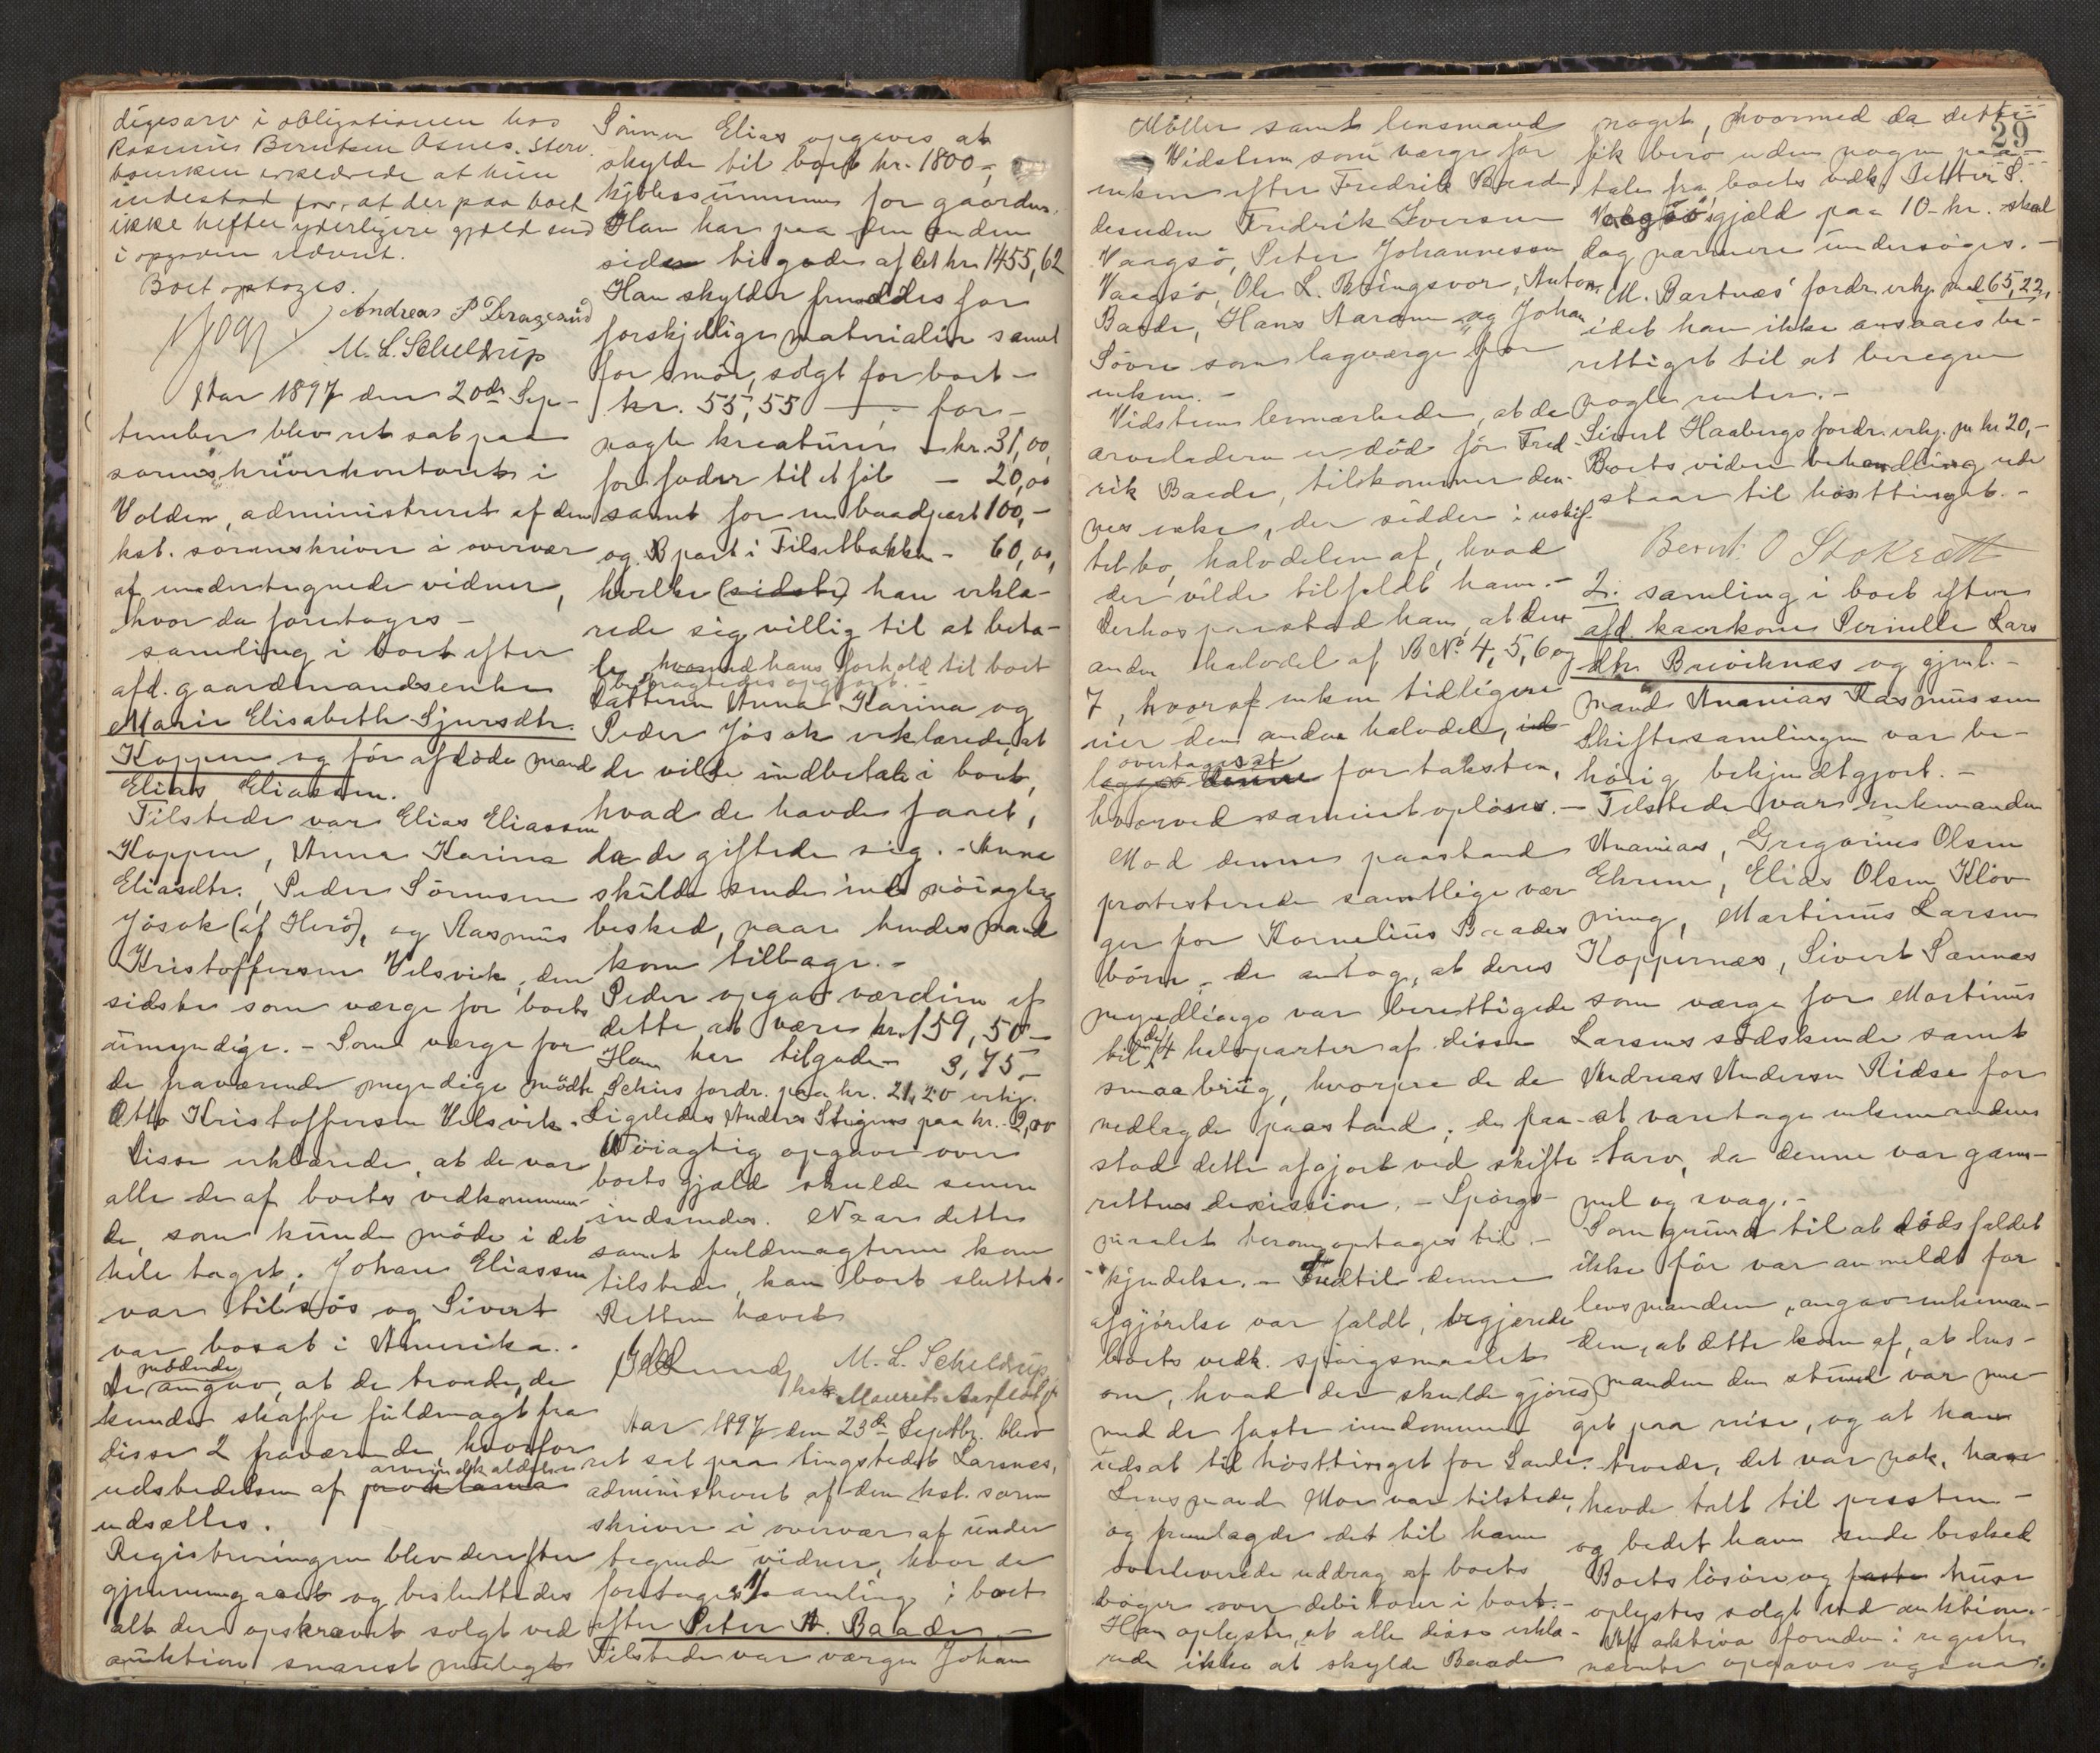 digesarv i obligationen hos
Rasmus Berntsen Asnes. Sterv-
boenken erklærede at hun
indestod for, at der paa boet
ikke hefter yderligere gjæld end
i opgaven nævnt.
Boet optages.
Andreas P Dragesund
M. L. Scheldrup
Aar 1897 den 20de Sep-
tember blev ret sat paa
sorenskriverkontoret i
Volden, administreret af den
kst. sorenskriver i overvær
af undertegnede vidner,
hvor da foretoges
samling i boet efter
afd. gaardmandsenke
Marie Elisabeth Sjursdtr.
Koppen og før afdöde mand
Elias Eliassen.
Tilstede var Elias Eliassen
Koppen, Anna Karina
Eliasdtr., Peder Sörensen
Jösok (af Herö), og Rasmus
Kristoffersen Velsvik, den
sidste som værge for boets
umyndige. - Som værge for
de fraværende myndige mödte
Otto Kristoffersen Velsvik.
Disse erklærede, at de var
alle de af boets vedkommen-
de, som kunde möde i det
hele taget. Johan Eliassen
var tilsjös og Sivert
var bosat i Amerika. -
De mödende angav, at de troede, de
kunde skaffe fuldmagt fra
disse 2 fraværende, hvorfor
udstedelsen af proklama arveindkaldelse
udsættes.
Registreringen blev derefter
gjennemgaaet og besluttedes
alt der opskrevet solgt ved
auktion snarest muligt
Sönnen Elias opgaves at
skylde til boet kr. 1800 -,
kjöbesummen for gaarden.
Han har paa den anden
side tilgode af det kr. 1455,62
Han skylder fremdeles for
forskjellige materialier samt
for smör, solgt for boet -
kr. 55,55 - for -
nogle kreaturer - kr. 31,00,
for foder til et föl - 20,00
samt for en baadpart 100,-
og B part i Tilsetbakken - 60,00,
hvilke (sidste) han erklæ-
rede sig villig til at beta-
le hvormed hans forhold til boet
betragtedes opgjort. -
Datteren Anna Karina og
Peder Jösok erklærede, at
de vilde indbetale i boet,
hvad de havde faaet,
da de giftede sig. - Anna
skulde sende ind nöiagtig
besked, naar hendes mand
kom tilbage. -
Peder opgav værdien af
dette at være kr. 159,50 -
Han har tilgode - 3,75 -
Schius fordr. paa kr. 21,20 erkj.
Ligeledes Anders Stigens paa kr. 2,00
Nöiagtig opgave over
boets gjæld skulde senere
indsendes. Naar dette
samt fuldmagterne kom
tilstede, kan boet sluttes.
Retten hævet
M. L. Scheldrup
Aar 1897 den 23de Septbr. blev
ret sat paa tingstedet Larsnes,
administreret af den kst. soren
skriver i overvær af under
tegnede vidner, hvor da
foretoges 1/ samling i boet
efter Peter A. Baade. -
Tilstede var værgen Johan
29
Möller samt lensmand
Vidstein som værge for
enken efter Fredrik Baade,
desuden Fredrik Iversen
Vaagsö, Peter Johannessen
Vaagsö, Ole L. Bringsvor, Anton
Baade, Hans Aarøen og Johan
Sövre som lagværge for
enken. -
Vidstein bemærkede, at da
arveladeren er död för Fred
rik Baade, tilkommer den-
nes enke, der sidder i uskif-
tet bo, halvdelen af, hvad
der vilde tilfaldt ham. -
Derhos paastod han, at den
anden halvdel af B No 4, 5, 6 og
7, hvoraf enken tidligere
eier den anden halvdel, ud
lægges denne overtages at for taksten,
hvorved sameiet oplöses. -
Mod denne paastand
protesterede samtlige vær
ger for Kornelius Baades
börn, - de antog, at deres
myndlinge var berettigede
til de 4 halvparter af disse
smaa brug, hvorfore de de
nedlagde paastand; de paa-
stod dette afgjort ved skifte
rettens decission. - Spörgs-
maalet herom optages til -
kjendelse. - Indtil denne
afgjörelse var faldt, begjærede
boets vedk. spörgsmaalet
om, hvad der skulde gjöres
med de faste eiendomme
udsat til hösttinget for Sande.
Lensmand Moe var tilstede,
og fremlagde det til ham
overleverede uddrag af boets
böger over debitorer i boet. -
Han oplyste, at alle disse erklæ-
rede ikke at skylde Baade
noget, hvormed da dette
fik bero uden nogen paa-
tale fra boets vedk. Petter S.
Vaagsö's gjæld paa 10- kr. skal
dog nærmere undersöges. -
M. Bartnæs' fordr. erkj. med 65,22,
idet han ikke ansaaes be-
rettiget til at beregne
nogle renter. -
Sivert Haabergs fordr. erkj. pr kr 20,-
Boets videre behandling ude
staar til hösttinget. -
Bernt. O Stokræt
2. samling i boet efter
afd. kaarkone Pernille Lars
dtr. Breviknæs og gjenl. -
mand Ananias Rasmussen
Skiftesamlingen var be-
hörig bekjendtgjort. -
Tilstede var enkemanden
Ananias, Gregorius Olsen
Ekrene, Elias Olsen Klöv
ning, Martinus Larsen
Koppernæs, Sivert Sannæs
som værge for Martinus
Larsens södskende samt
Andreas Andersen Ridse for
at varetage enkemandens
tarv, da denne var gam-
mel og svag. -
Som grund til at dödsfaldet
ikke för var anmeldt for
lensmanden, angav enkeman-
den, at dette kom af, at lens-
manden den stund var me
get paa reise, og at han
troede, det var nok, han
havde talt til presten -
og bedet ham sende besked
Boets lösöre og faste huse
oplystes solgt ved auktion. -
Af aktiva foruden i registr.
nævnte opgaves ogsaa: